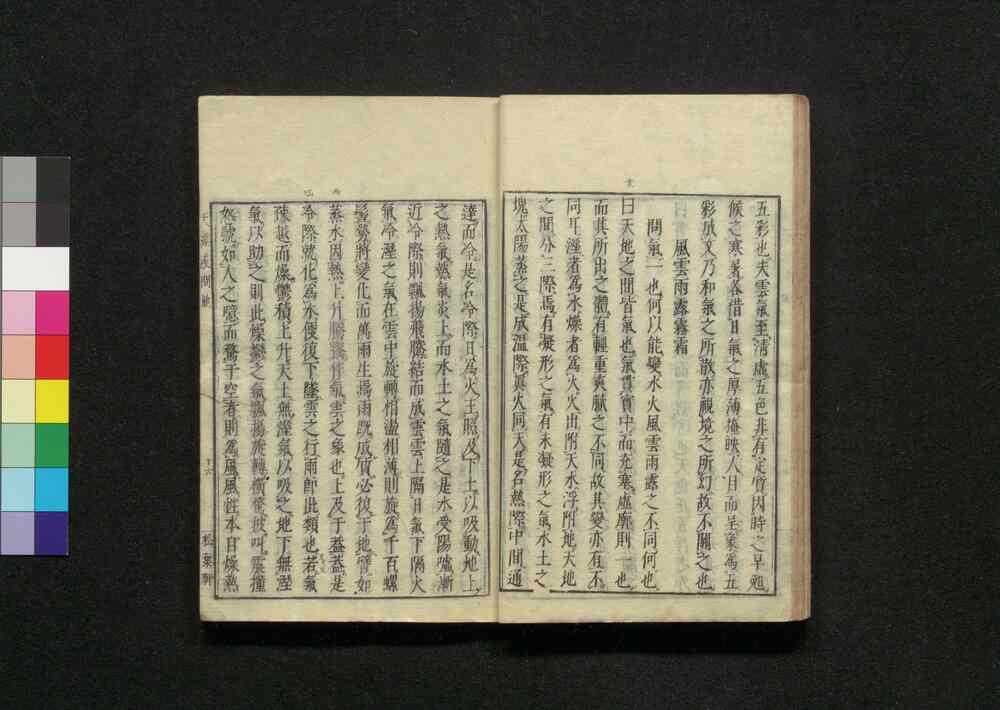 五彩也夫雲氣至清虛五色非有定質因時之早晚
候之寒暑各借日氣之厚薄掩映人目而呈象爲五
彩成文乃和氣之所散亦視境之所幻故不關之也
風雲雨露霧霜
問氣一也何以能變水火風雲雨露之不同何也
曰天地之間皆氣也氣貫實中而充塞虛廓則一也
而其所出之體有輕重爽膩之不同故其變亦有不
同耳溼者爲水燥者爲火火出附天水浮附地天地
之間分三際焉有凝形之氣有未凝形之氣水土之
塊太陽蒸之是成溫際眞火同天是名熱際中間通
達而冷是名冷際日爲火主照及下土以吸動地上
之熱氣熱氣炎上而水土之氣隨之是水受陽噓漸
近冷際則飄揚飛騰結而成雲雲上隔日氣下隔火
氣冷溼之氣在雲中旋轉相盪相薄則旋爲千百螺
髻勢將變化而萬雨生焉雨旣成質必復于地譬如
蒸水因熱上升騰騰作氣雲之象也上及于蓋蓋是
冷際就化爲水便復下墜雲之行雨卽此類也若氣
疎越而燥鬱積上升天上無溼氣以吸之地下無溼
氣以助之則此燥
之氣飄揚旋轉橫
彼叫震撞
怒號如人之噫而驚于空者則爲風風性本自燥熱
天
或問
十六
松葉軒